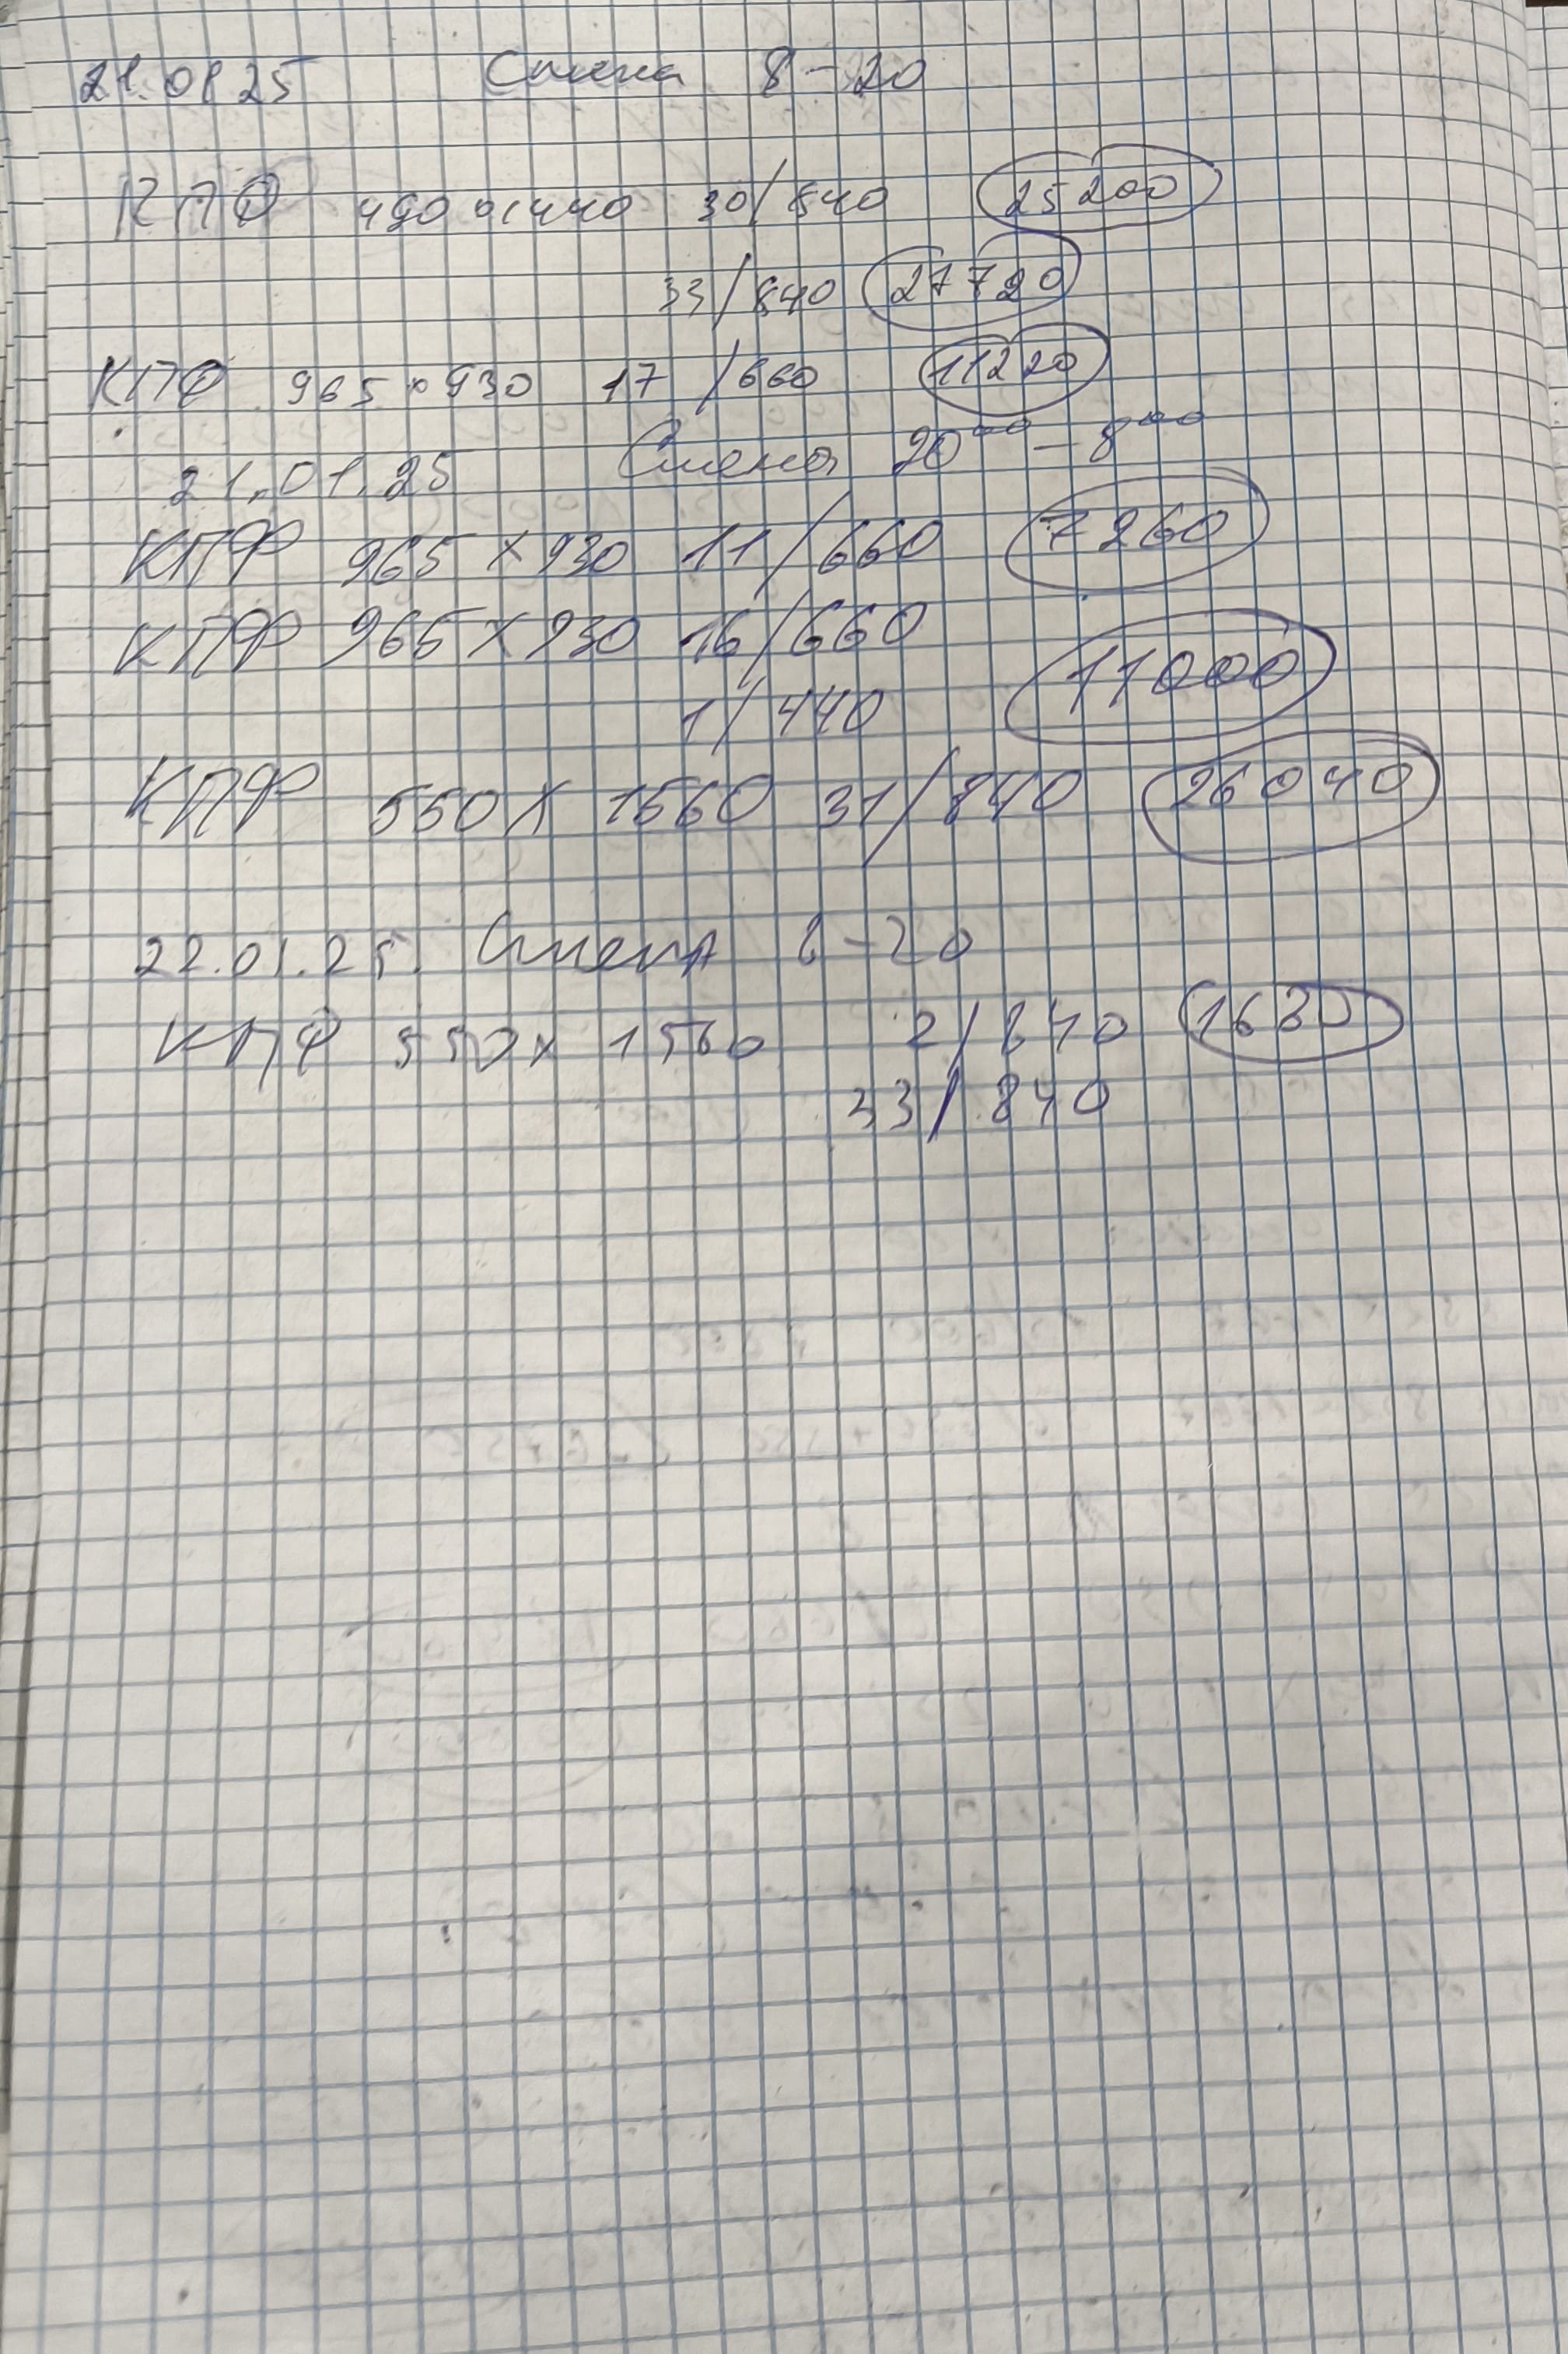 21.01 25 Смена 8-20
КПФ 490×1440 30/840 25200
33/840 27720
КПФ 965×930 17/660 11220
21.01.25 Смена 20⁰⁰-8⁰⁰
КПФ 965×930 11/660 7260
КПФ 965×930 16/660
1/440 11000
КПФ 550×1560 31/840 26040
22.01.25. Смена 8-20
КПФ 550×1560 2/840 1680
33/840